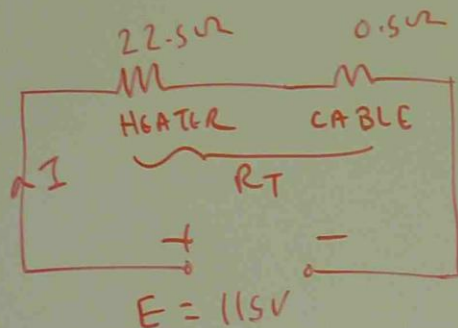 22.5Ω 0.5Ω
HEATER CABLE
I
RT
+ −
E = 115V